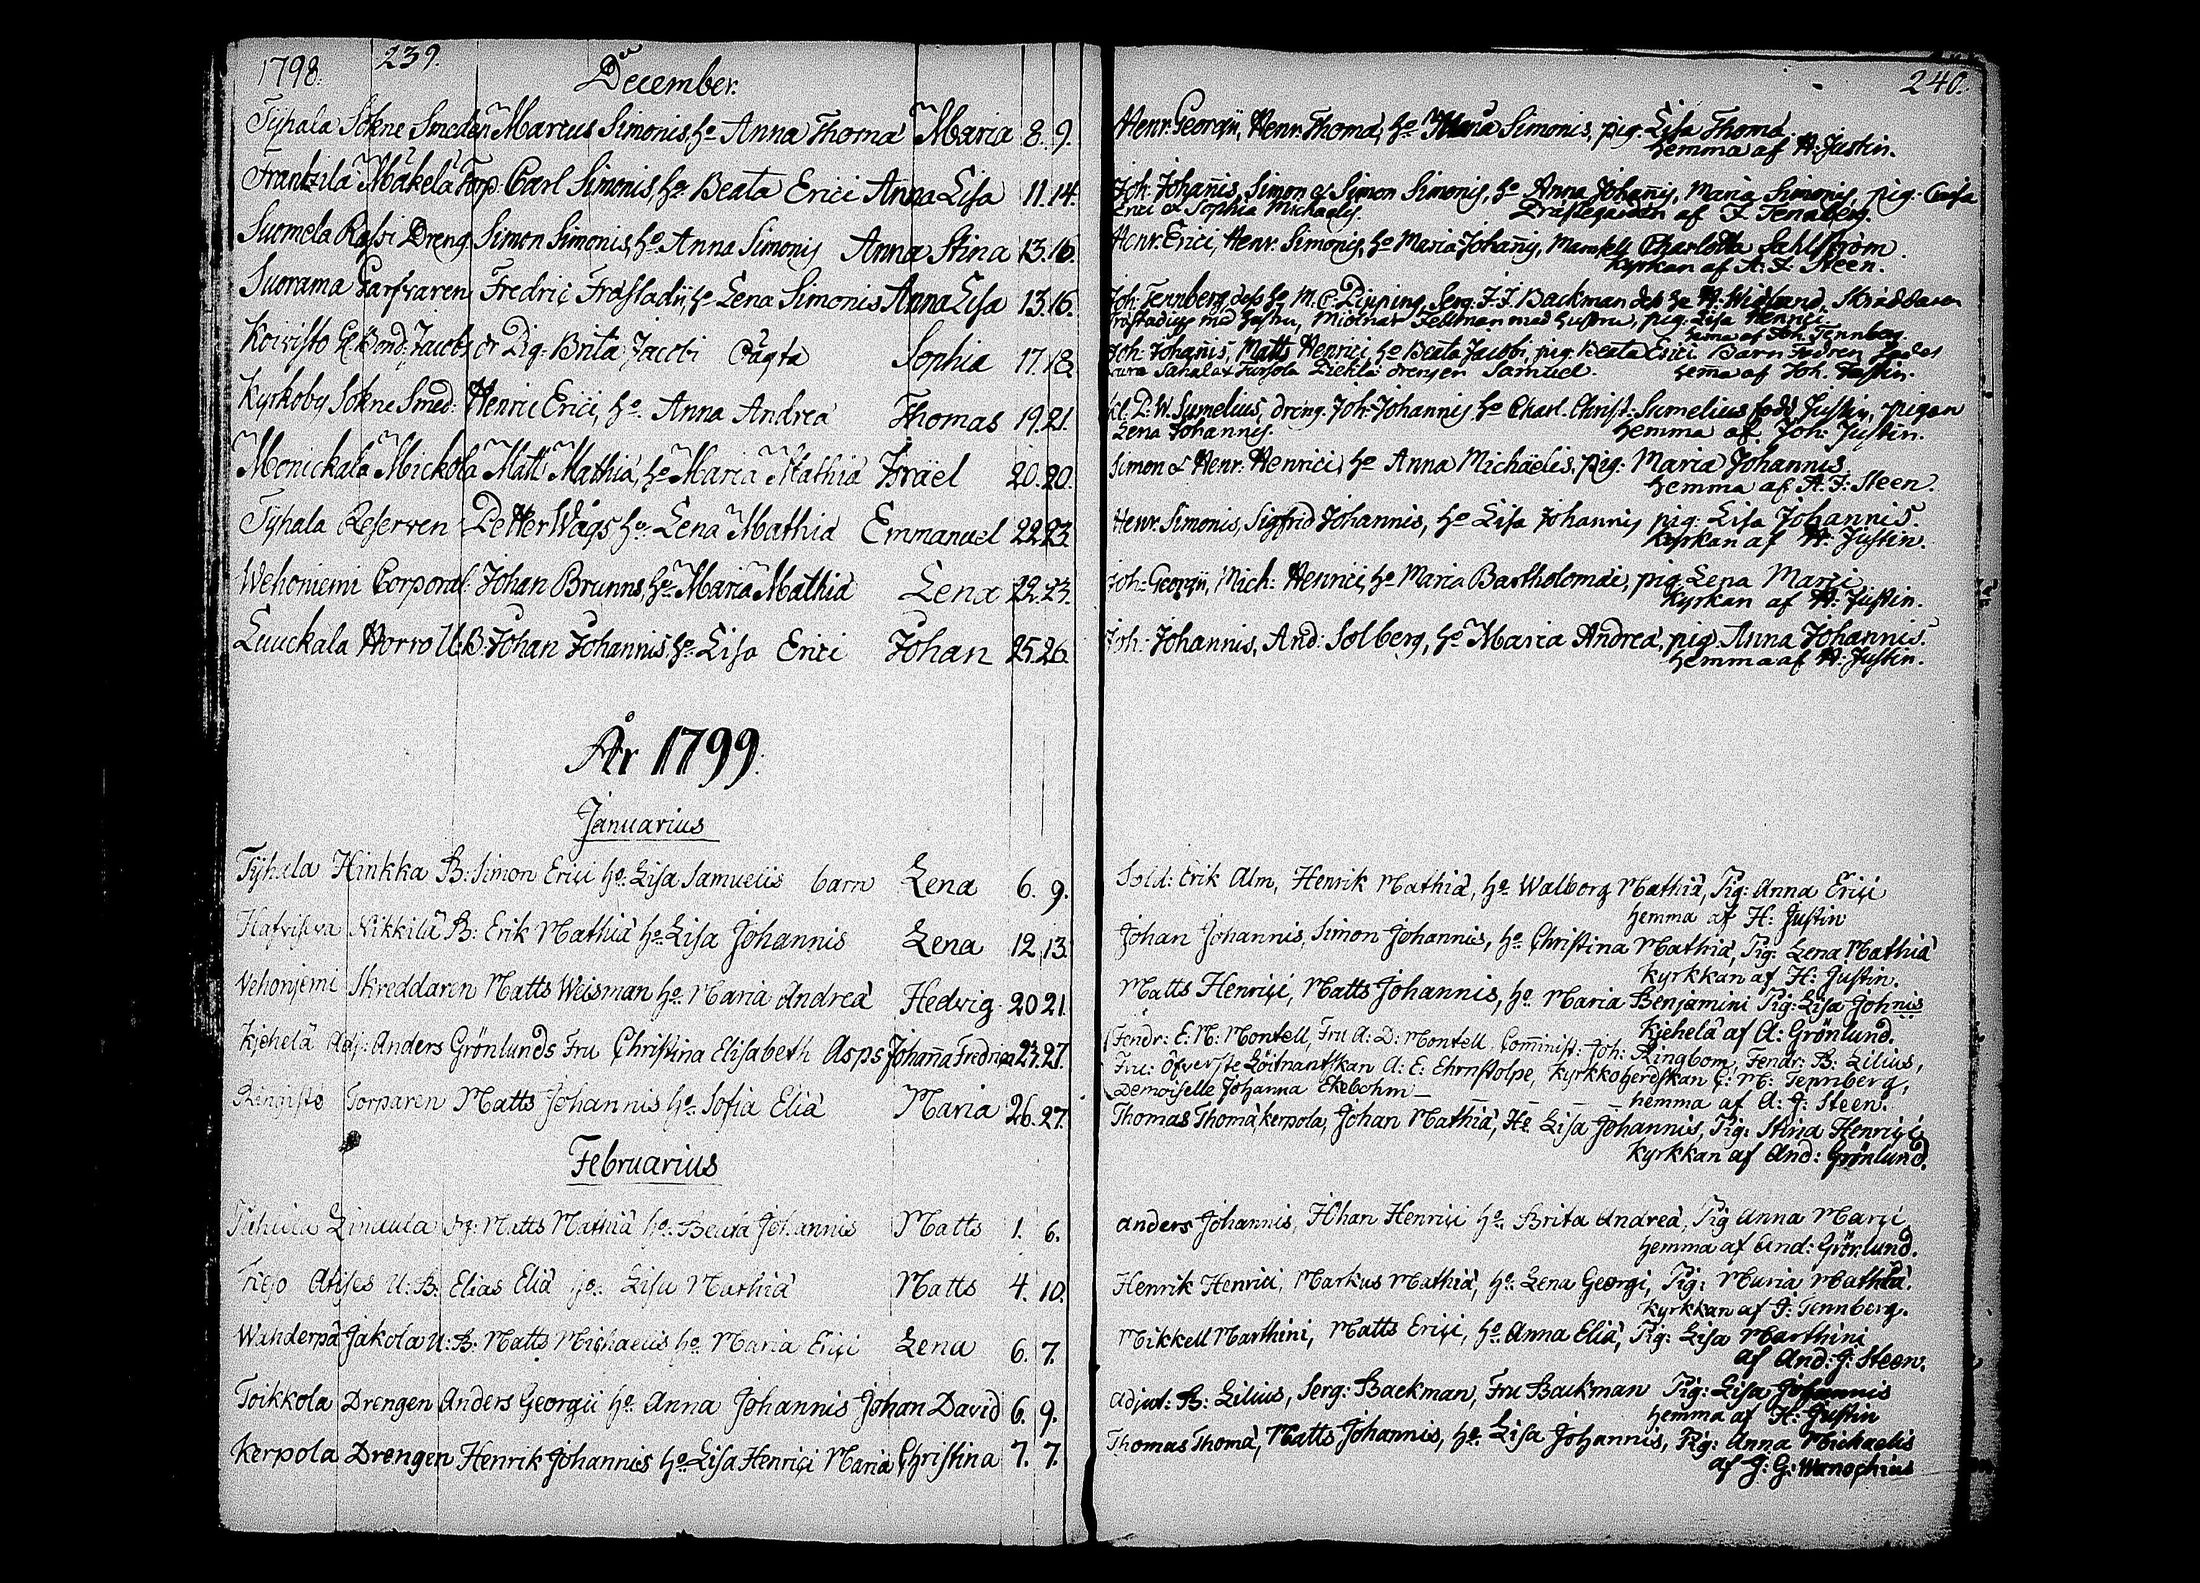 1798. 239.
December.
Tyhala Sokne Smeden Marcus Simonis, ho Anna Thomæ Maria 8. 9.
Frantzila Mäkelä Torp: Carl Simonis, ho Beata Erici Anna Lisa 11. 14.
Suomela Rassi Dreng Simon Simonis, ho Anna Simonis Anna Stina 13. 16.
Suorama Garfvaren Fredric Frosladii, ho Lena Simonis Anna Lisa 13. 16.
Koivisto Bond: Jacobs dr Pig: Brita Jacobi Oägta Sophia 17. 18.
Kyrkoby Sokne Smed: Henric Erici, ho Anna Andreæ Thomas 19. 21.
Monickala Mickola Matt Mathiæ, ho Maria Mathiæ Israël 20. 20.
Tyhala Reserven Petter Wågs ho Lena Mathiæ Emmanuel 22. 23.
Wehoniemi Corporal: Johan Brunns, ho Maria Mathiæ Lena 22. 23.
Luuckala Horro U:B: Johan Johannis, ho Lisa Erici Johan 25. 26.
År 1799.
Januarius
Tyhala Hinkka B: Simon Erici ho: Lisa Samuelis barn Lena 6. 9.
Hafviseva Nikkilä B: Erik Mathiæ ho: Lisa Johannis Lena 12. 13.
Vehonjemi Skreddaren Matts Weisman ho: Maria Andreæ Hedvig 20 21.
Kjehelä Adj: Anders Grönlunds Fru Christina Elisabeth Asps Johanna Fredrica 23. 27.
Ringisto Torparen Matts Johannis ho: Sofia Eliæ Maria 26. 27.
Februarius
Matts Mathiæ ho: Beata Johannis Matts 1. 6.
U: B: Elias Eliæ ho: Lisa Mathiæ Matts 4. 10.
Wähderpä Jakola U: B: Matts Michaelis ho: Maria Erici Lena 6. 7.
Toikkola Drengen Anders Georgii ho: Anna Johannis Johan David 6. 9.
Kerpola Drengen Henrik Johannis ho: Lisa Henrici Maria Christina 7. 7.
240.
Henr. Georgii, Henr. Thomæ, ho Maria Simonis, pig. Lisa Thomæ.
hemma af H: Justin.
Joh. Johannis, Simon & Simon Simonis, ho Anna Johannis, Maria Simonis, pig: Caisa
Erici & Sophia Michaelis. Prästegården af J. Tennberg.
Henr. Erici, Henr. Simonis, ho Maria Johannis, Mamsell Charlotta Sahlström.
Kyrkan af A. J. Steen.
Joh. Tennberg, dess ho M. C. Dipping, Serg: J. J. Backman dess ho H. Widlund,
med hustru, Feltman med hustru, pig. Lisa Henrici
hema af Joh. Tennberg.
Joh: Johannis, Matts Henrici, ho Beata Jacobi, pig. Beata Erici Barn Fadren
drengen Samuel. hema af Joh. Justin.
D. W. Sumelius, dreng. Joh: Johannis ho Charl. Christ: Sumelius född Justin, pigan
Lena Johannis. hemma af Joh: Justin.
Simon & Henr. Henrici, ho Anna Michaëlis, pig: Maria Johannis.
hemma af A. J: Steen.
Henr. Simonis, Sigfrid Johannis, ho Lisa Johannis pig: Lisa Johannis.
Kyrkan af H: Justin.
Joh: Georgii, Mich: Henrici, ho Maria Bartholomæi, pig. Lena Marci
Kyrkan af H: Justin.
Joh: Johannis, And: Solberg, ho Maria Andreæ, pig. Anna Johannis.
hemma af H: Justin.
Sold: Erik Alm, Henrik Mathiæ, ho Walborg Mathiæ, Pig: Anna Erici
hemma af H: Justin
Johan Johannis, Simon Johannis, ho Christina Mathiæ, Pig: Lena Mathiæ
kyrkkan af H: Justin.
Matts Henrici, Matts Johannis, ho Maria Benjamini Pig: Lisa Johnis
Kjehelä af A: Grönlund.
Fendr: E: M: Montell, Fru A: D: Montell, Comminist: Joh: Ringbom, Fendr: B: Lilius,
Fru: Öfverste Löitnantskan A: E: Ehrnstolpe, kyrkkoherdskan C: M: Tennberg,
Demoiselle Johanna Ekebohm — hemma af A: J: Steen.
Thomas Thomæ kerpola, Johan Mathiæ, Ho Lisa Johannis, Pig: Stina Henrici
kyrkkan af And: Grönlund.
Anders Johannis, Johan Henrici ho: Brita Andreæ, Pig Anna Marci
hemma af And: Grönlund.
Henrik Henrici, Markus Mathiæ, ho: Lena Georgi, Pig: Maria Mathiæ.
kyrkkan af J: Tennberg.
Mikkell Marthini, Matts Erici, ho: Anna Eliæ, Pig: Lisa Marthini
af And: J: Steen.
Adjut: B: Lilius, Serg: Backman, Fru Backman Pig: Lisa Johannis
hemma af H: Justin
Thomas Thomæ, Matts Johannis, ho: Lisa Johannis, Pig: Anna Michaelis
af J: G: Wanochius